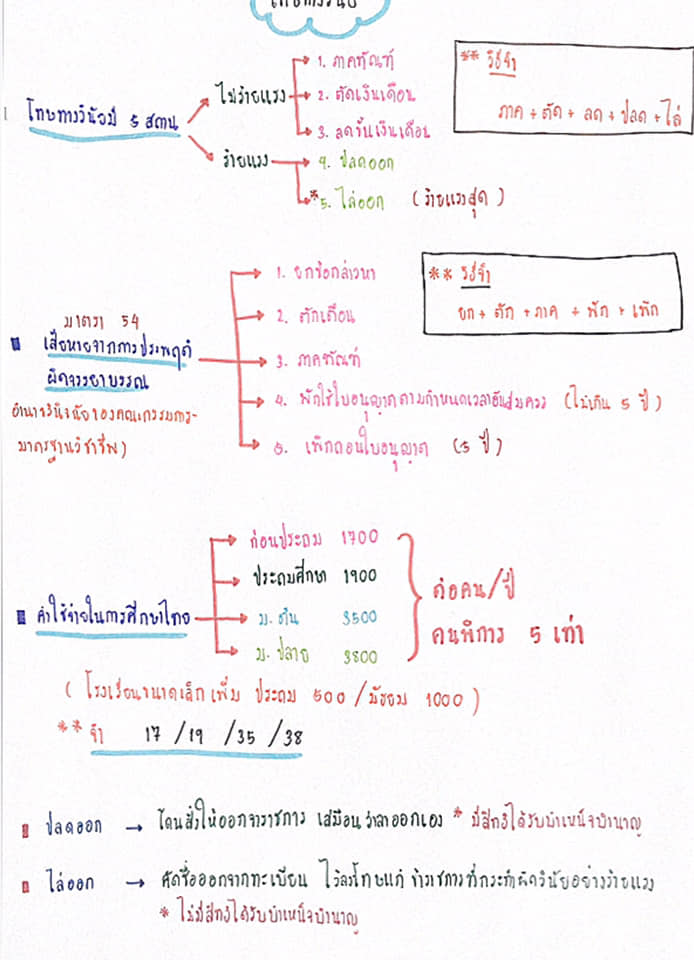 โทษทางวินัย
โทษทางวินัยมี 5 สถาน
ไม่ร้ายแรง
1. ภาคทัณฑ์
2. ตัดเงินเดือน
3. ลดขั้นเงินเดือน
ร้ายแรง
4. ปลดออก
*5. ไล่ออก (ร้ายแรงสุด)
** วิธีจำ
ภาค + ตัด + ลด + ปลด + ไล่
มาตรา 54
เสียหายจากการประพฤติ
ผิดจรรยาบรรณ
อำนาจวินิจฉัยของคณะกรรมการ-
มาตรฐานวิชาชีพ)
1. ยกข้อกล่าวหา
2. ตักเตือน
3. ภาคทัณฑ์
4. พักใช้ใบอนุญาตตามกำหนดเวลาอันสมควร (ไม่เกิน 5 ปี)
5. เพิกถอนใบอนุญาต (5 ปี)
** วิธีจำ
ยก + ตัก + ภาค + พัก + เพิก
ค่าใช้จ่ายในการศึกษาไทย
ก่อนประถม 1700
ประถมศึกษา 1900
ม. ต้น 3500
ม. ปลาย 3800
ต่อคน/ปี
คนพิการ 5 เท่า
( โรงเรียนขนาดเล็กเพิ่ม ประถม 500 / มัธยม 1000 )
** จำ 17 /19 /35 /38
ปลดออก → โดนสั่งให้ออกจากราชการ เสมือนว่าลาออกเอง * มีสิทธิ์ได้รับบำเหน็จบำนาญ
ไล่ออก → คัดชื่อออกจากทะเบียน ไว้ลงโทษแก่ ข้าราชการที่กระทำผิดวินัยอย่างร้ายแรง
* ไม่มีสิทธิ์ได้รับบำเหน็จบำนาญ